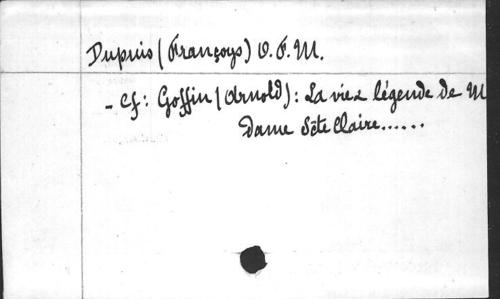 Dupuis (Françoys) O.F.M.
- Cf: Goffin (Arnold): La vie & légende de M
Dame Scte Claire......